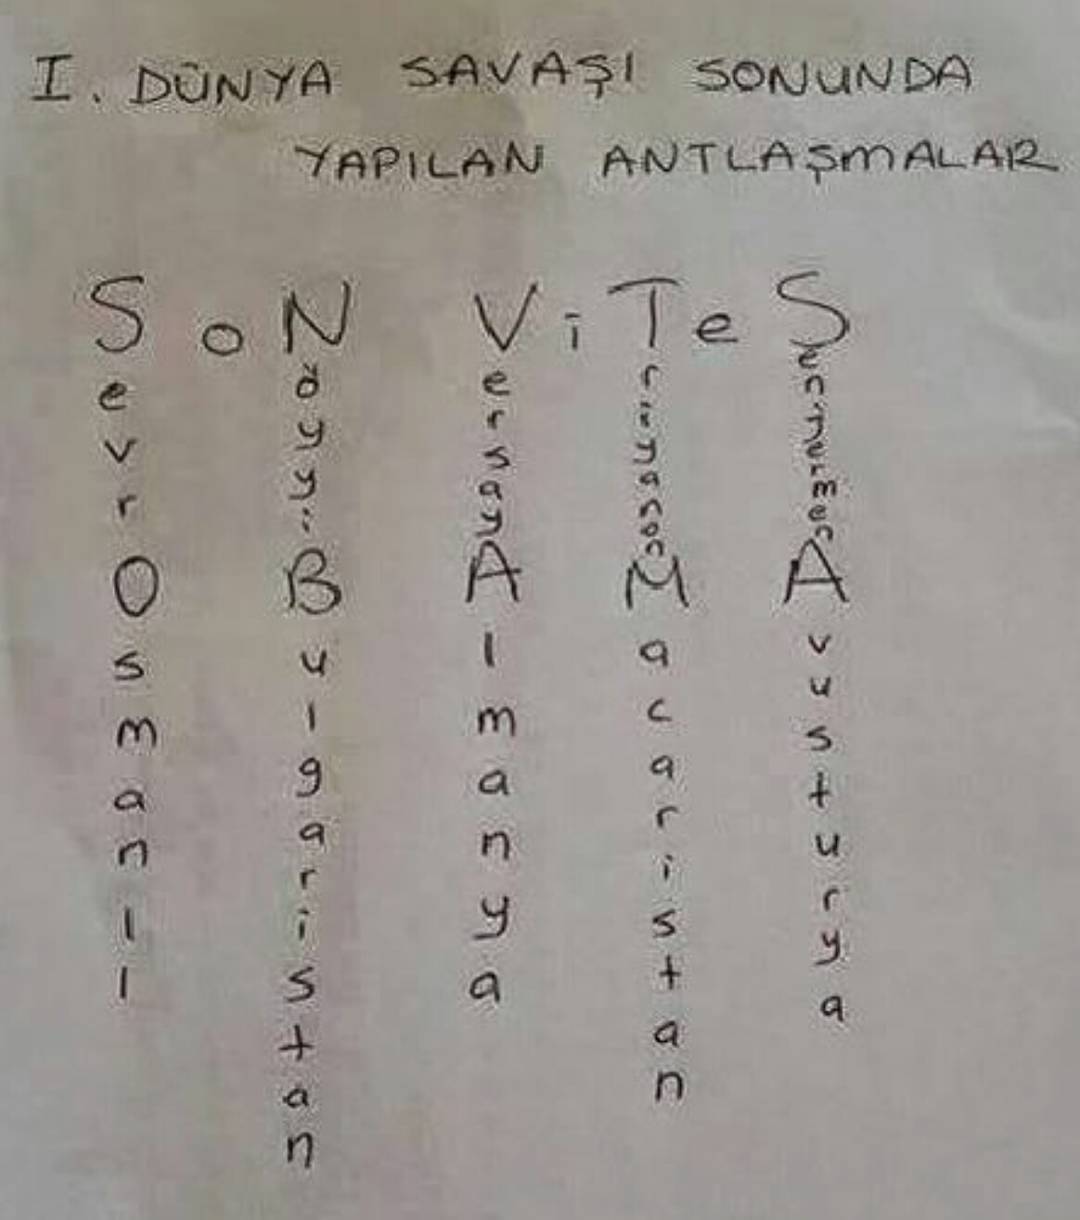 I. DÜNYA SAVAŞI SONUNDA
YAPILAN ANTLAŞMALAR
SoN ViTeS
Sevr Osmanlı
Nöyyi Bulgaristan
Versay Almanya
Triyanon Macaristan
Avusturya